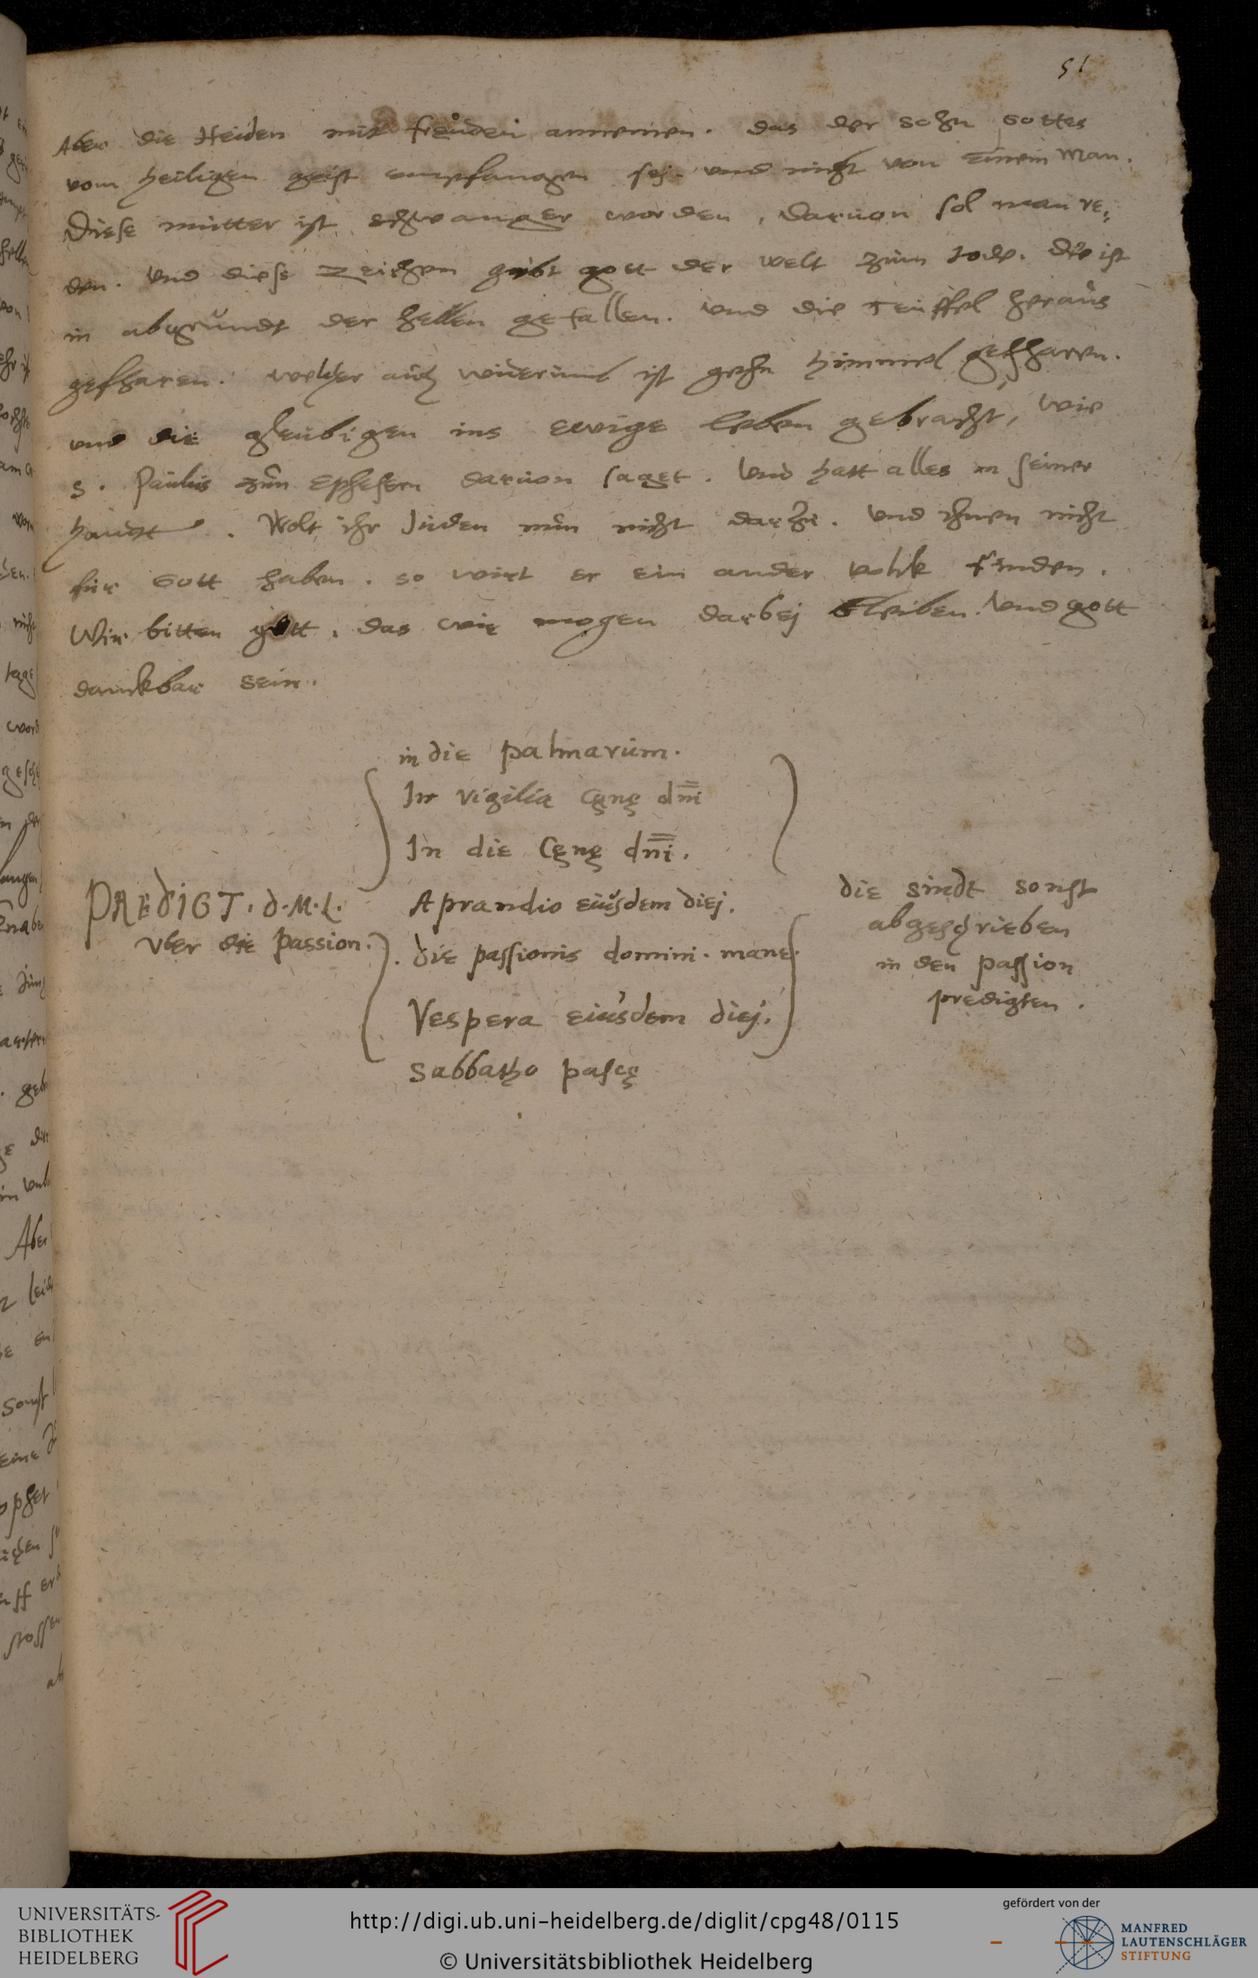 51
Aber die Heiden mit freuden annemen. das der sohn Gottes
vom heiligen geist empfangen sej. und nicht von einem Man.
Diese mutter ist schwanger worden, daruon sol man re¬
den. und diese zeichen gibt gott der welt zum tode. die ist
in abgrundt der hellen gefallen. und die teuffel heraus
gefharen. welcher auch widerumb ist gehn himmel gefharen.
und die gleubigen ins ewige leben gebracht, wie
S. Paulus zun Ephesern daruon saget. und hatt alles in seiner
handt. Wolt ihr Juden nun nicht darzu. und ihnen nicht
fur Gott haben. so wirt er ein ander volck finden.
Wir bitten gott, das wir mogen darbej bleiben. und gott
danckbar sein.
in die palmarum.
In vigilia cęnę dni
In die Cęnę dni.
PREDIGT. D. M. L. A prandio eiusdem diej.
vber die passion. die passionis domini. mane.
Vespera eiusdem diej.
Sabbatho pascę
die sindt sonst
abgeschrieben
in den passion
predigten.
UNIVERSITÄTS-
BIBLIOTHEK
HEIDELBERG
http://digi.ub.uni-heidelberg.de/diglit/cpg48/0115
© Universitätsbibliothek Heidelberg
gefördert von der
MANFRED
LAUTENSCHLÄGER
STIFTUNG